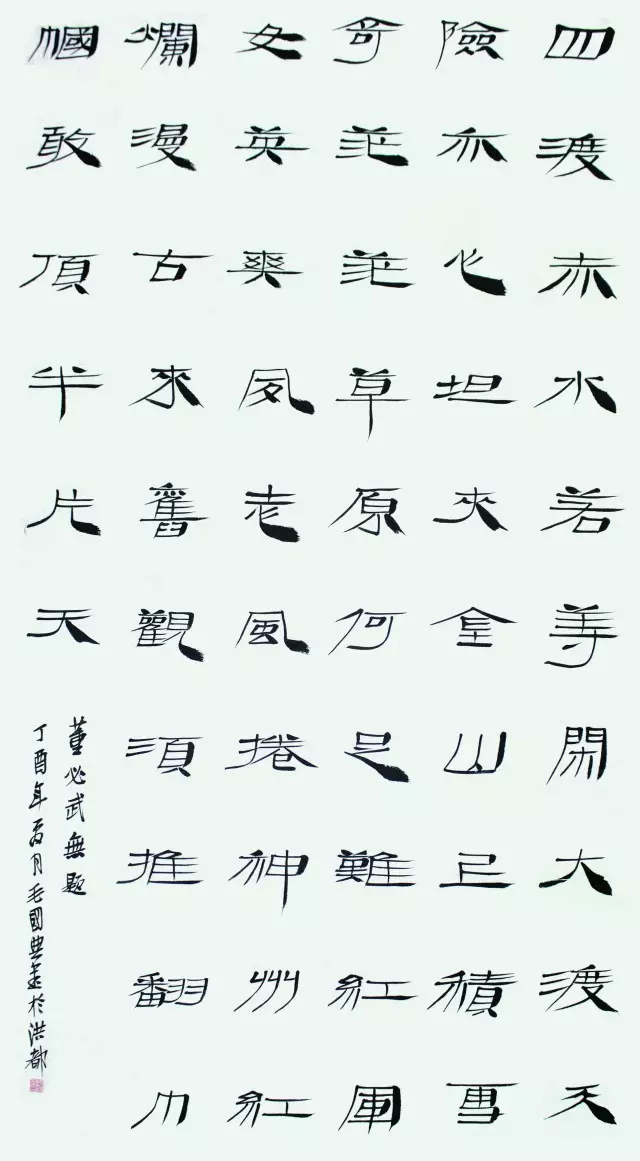 四渡赤水若等閑大渡天
險亦心坦夾金山已積雪
奇茫茫草原何足難紅軍
女英爽夙老風捲神州紅
爛漫古來舊觀須推翻巾
幗敢頂半片天
董必武無題
丁酉年月毛國典書於洪都